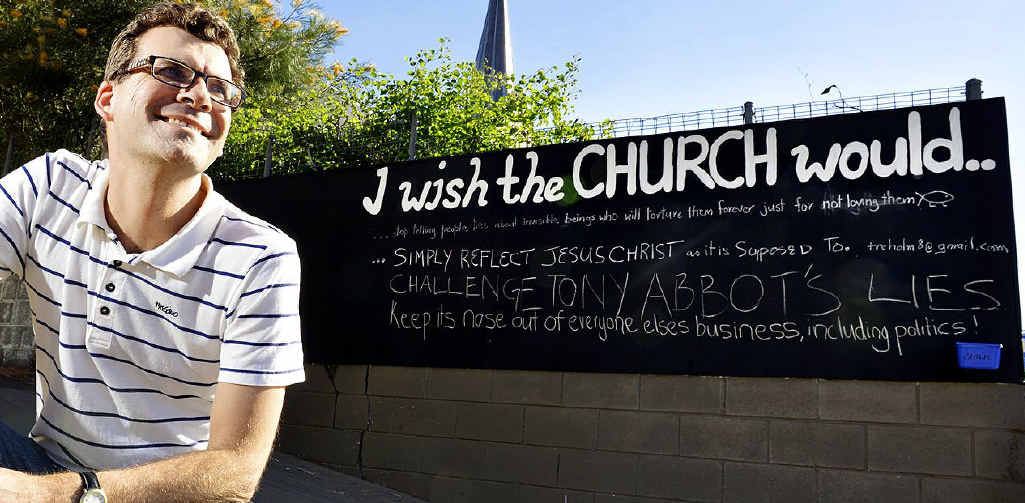 I wish the CHURCH would..
....stop telling people lies about invisible beings who will torture them forever just for not loving them
... SIMPLY REFLECT JESUS CHRIST as it is SuposeD To. treholm8@gmail.com
CHALLENGE TONY ABBOT'S LIES
Keep its nose out of everyone elses business, including politics!